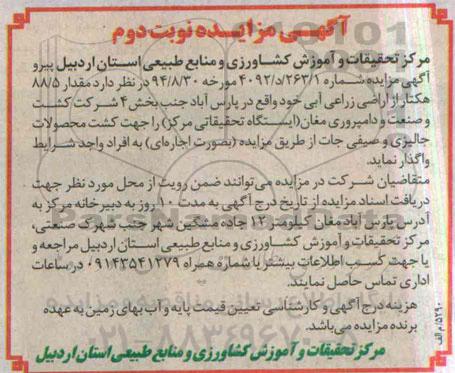 آگهی مزایده نوبت دوم
مرکز تحقیقات و آموزش کشاورزی و منابع طبیعی استان اردبیل پیرو
آگهی مزایده شماره ۴۰۹۲/د/۲۶۳/۱ مورخه ۹۴/۸/۳۰ در نظر دارد مقدار ۸۸/۵
هکتار از اراضی زراعی آبی خود واقع در پارس آباد جنب بخش ۴ شرکت کشت
و صنعت و دامپروری مغان (ایستگاه تحقیقاتی مرکز) را جهت کشت محصولات
جالیزی و صیفی جات از طریق مزایده (بصورت اجاره‌ای) به افراد واجد شرایط
واگذار نماید.
متقاضیان شرکت در مزایده می‌توانند ضمن رویت از محل مورد نظر جهت
دریافت اسناد مزایده از تاریخ درج آگهی به مدت ۱۰ روز به دبیرخانه مرکز به
آدرس پارس آباد مغان کیلومتر ۱۲ جاده مشکین شهر جنب شهرک صنعتی،
مرکز تحقیقات و آموزش کشاورزی و منابع طبیعی استان اردبیل مراجعه و
یا جهت کسب اطلاعات بیشتر با شماره همراه ۰۹۱۴۳۵۴۱۲۷۹ در ساعات
اداری تماس حاصل نمایند.
هزینه درج آگهی و کارشناسی تعیین قیمت پایه و آب بهای زمین به عهده
برنده مزایده می‌باشد.
۵۲۹۰/م الف
مرکز تحقیقات و آموزش کشاورزی و منابع طبیعی استان اردبیل
ParsNamadData
۰۲۱-۸۸۳۴۹۶۷۰